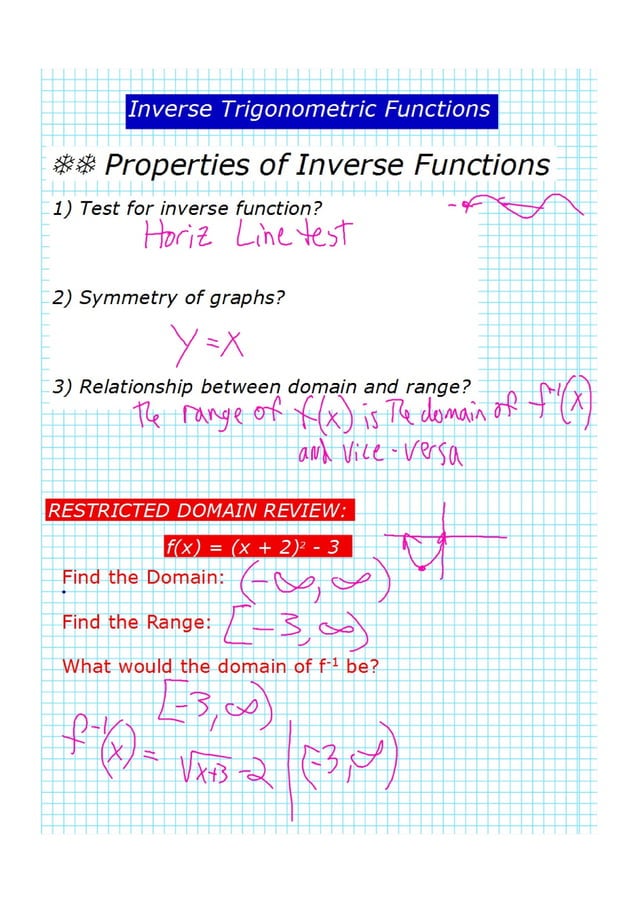 Inverse Trigonometric Functions
❄❄ Properties of Inverse Functions
1) Test for inverse function?
Horiz Line test
2) Symmetry of graphs?
y = x
3) Relationship between domain and range?
The range of f(x) is The domain of f⁻¹(x)
and vice-versa
RESTRICTED DOMAIN REVIEW:
f(x) = (x + 2)² - 3
Find the Domain: (-∞, ∞)
Find the Range: [-3, ∞)
What would the domain of f⁻¹ be?
[-3, ∞)
f⁻¹(x) = √x+3 -2 | [-3, ∞)